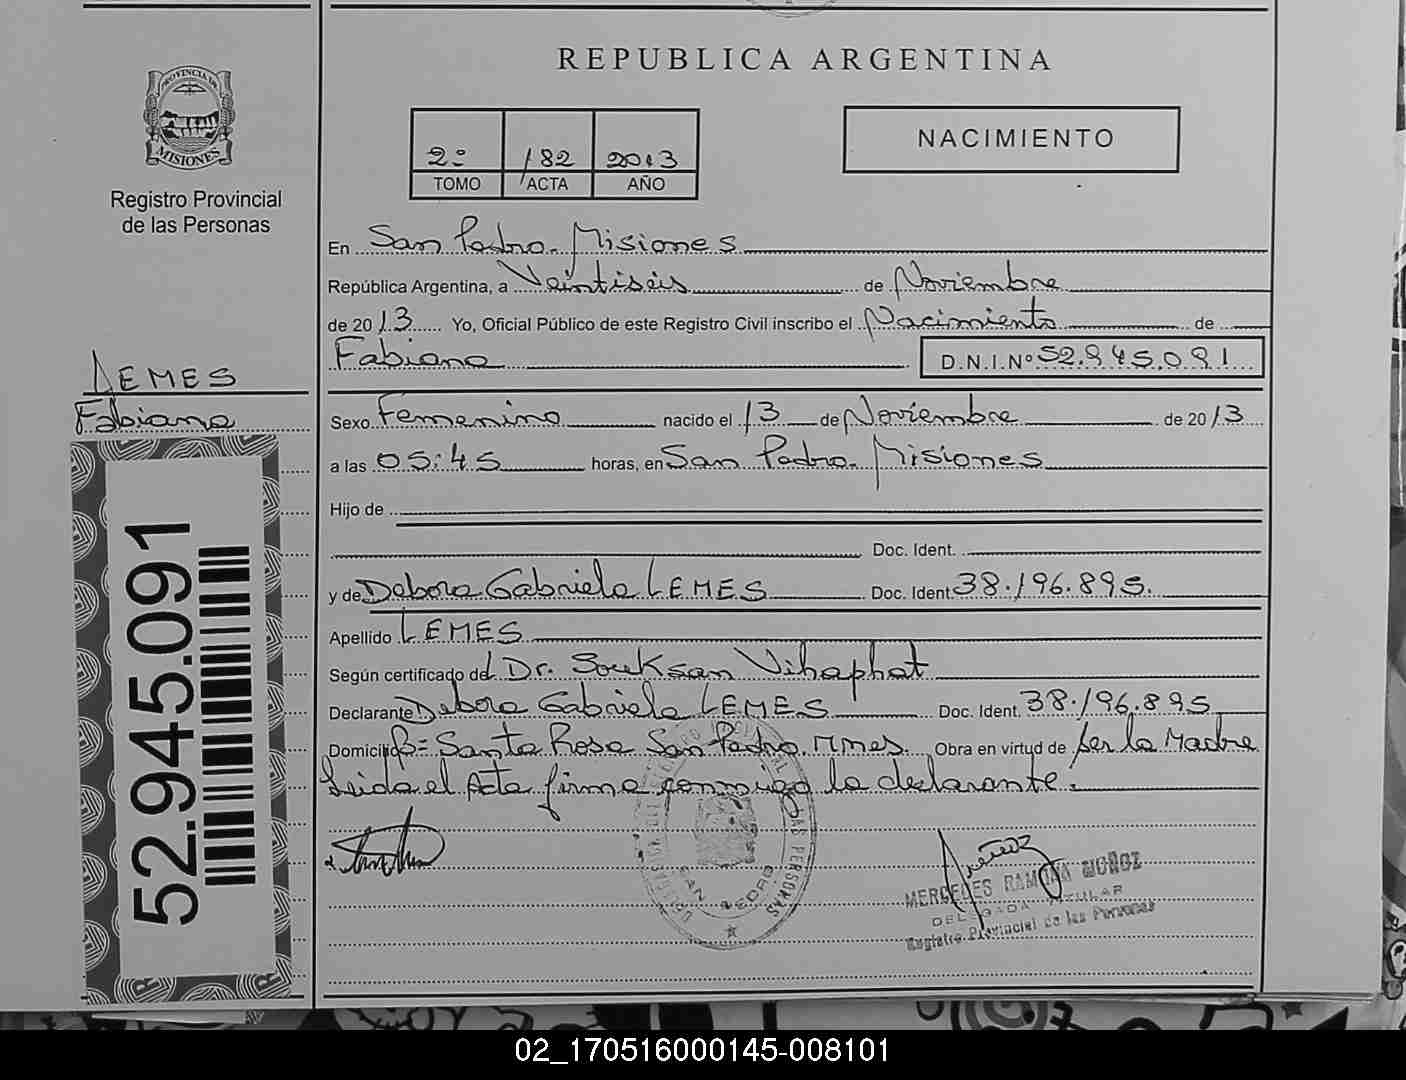 REPUBLICA ARGENTINA
PROVINCIA DE
MISIONES
Registro Provincial
de las Personas
2º 182 2013
TOMO ACTA AÑO
NACIMIENTO
En San Pedro. Misiones
República Argentina, a Veintiseis de Noviembre
de 2013 Yo, Oficial Público de este Registro Civil inscribo el Nacimiento de
Fabiana D.N.I.Nº 52.945.091
LEMES
Fabiana
Sexo Femenino nacido el 13 de Noviembre de 2013
a las 05:45 horas, en San Pedro. Misiones
Hijo de
Doc. Ident.
y de Debora Gabriela LEMES Doc. Ident. 38.196.895.
Apellido LEMES
Según certificado del Dr. Souksan Vihaphat
Declarante Debora Gabriela LEMES Doc. Ident. 38.196.895
Domicilio Bº Santa Rosa San Pedro. Mnes. Obra en virtud de ser la Madre
Leida el Acta firma conmigo la declarante.
52.945.091
SAN PEDRO
MERCEDES RAMONA MUÑOZ
DELEGADA TITULAR
Registro Provincial de las Personas
02_170516000145-008101